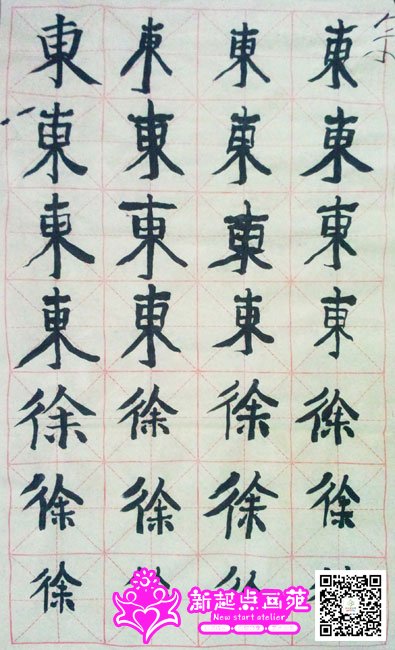 東東東東
東東東東
東東東東
東東東東
徐徐徐徐
徐徐徐徐
徐
新起点画苑
New start atelier